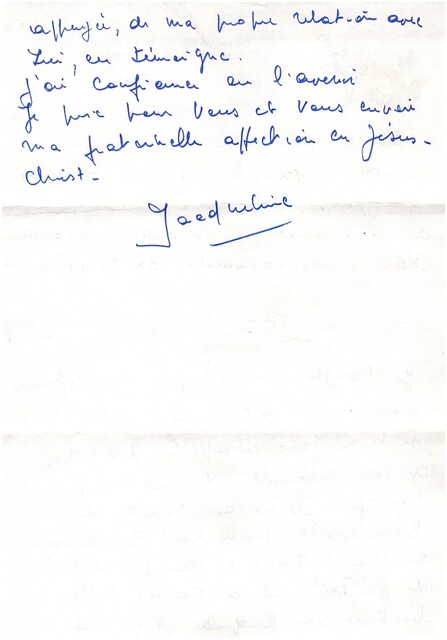 appuyée, de ma propre relation avec
Lui, en témoigne.
J'ai confiance en l'avenir
Je prie pour vous et vous envoie
ma fraternelle affection en Jésus-
Christ-
Jacqueline